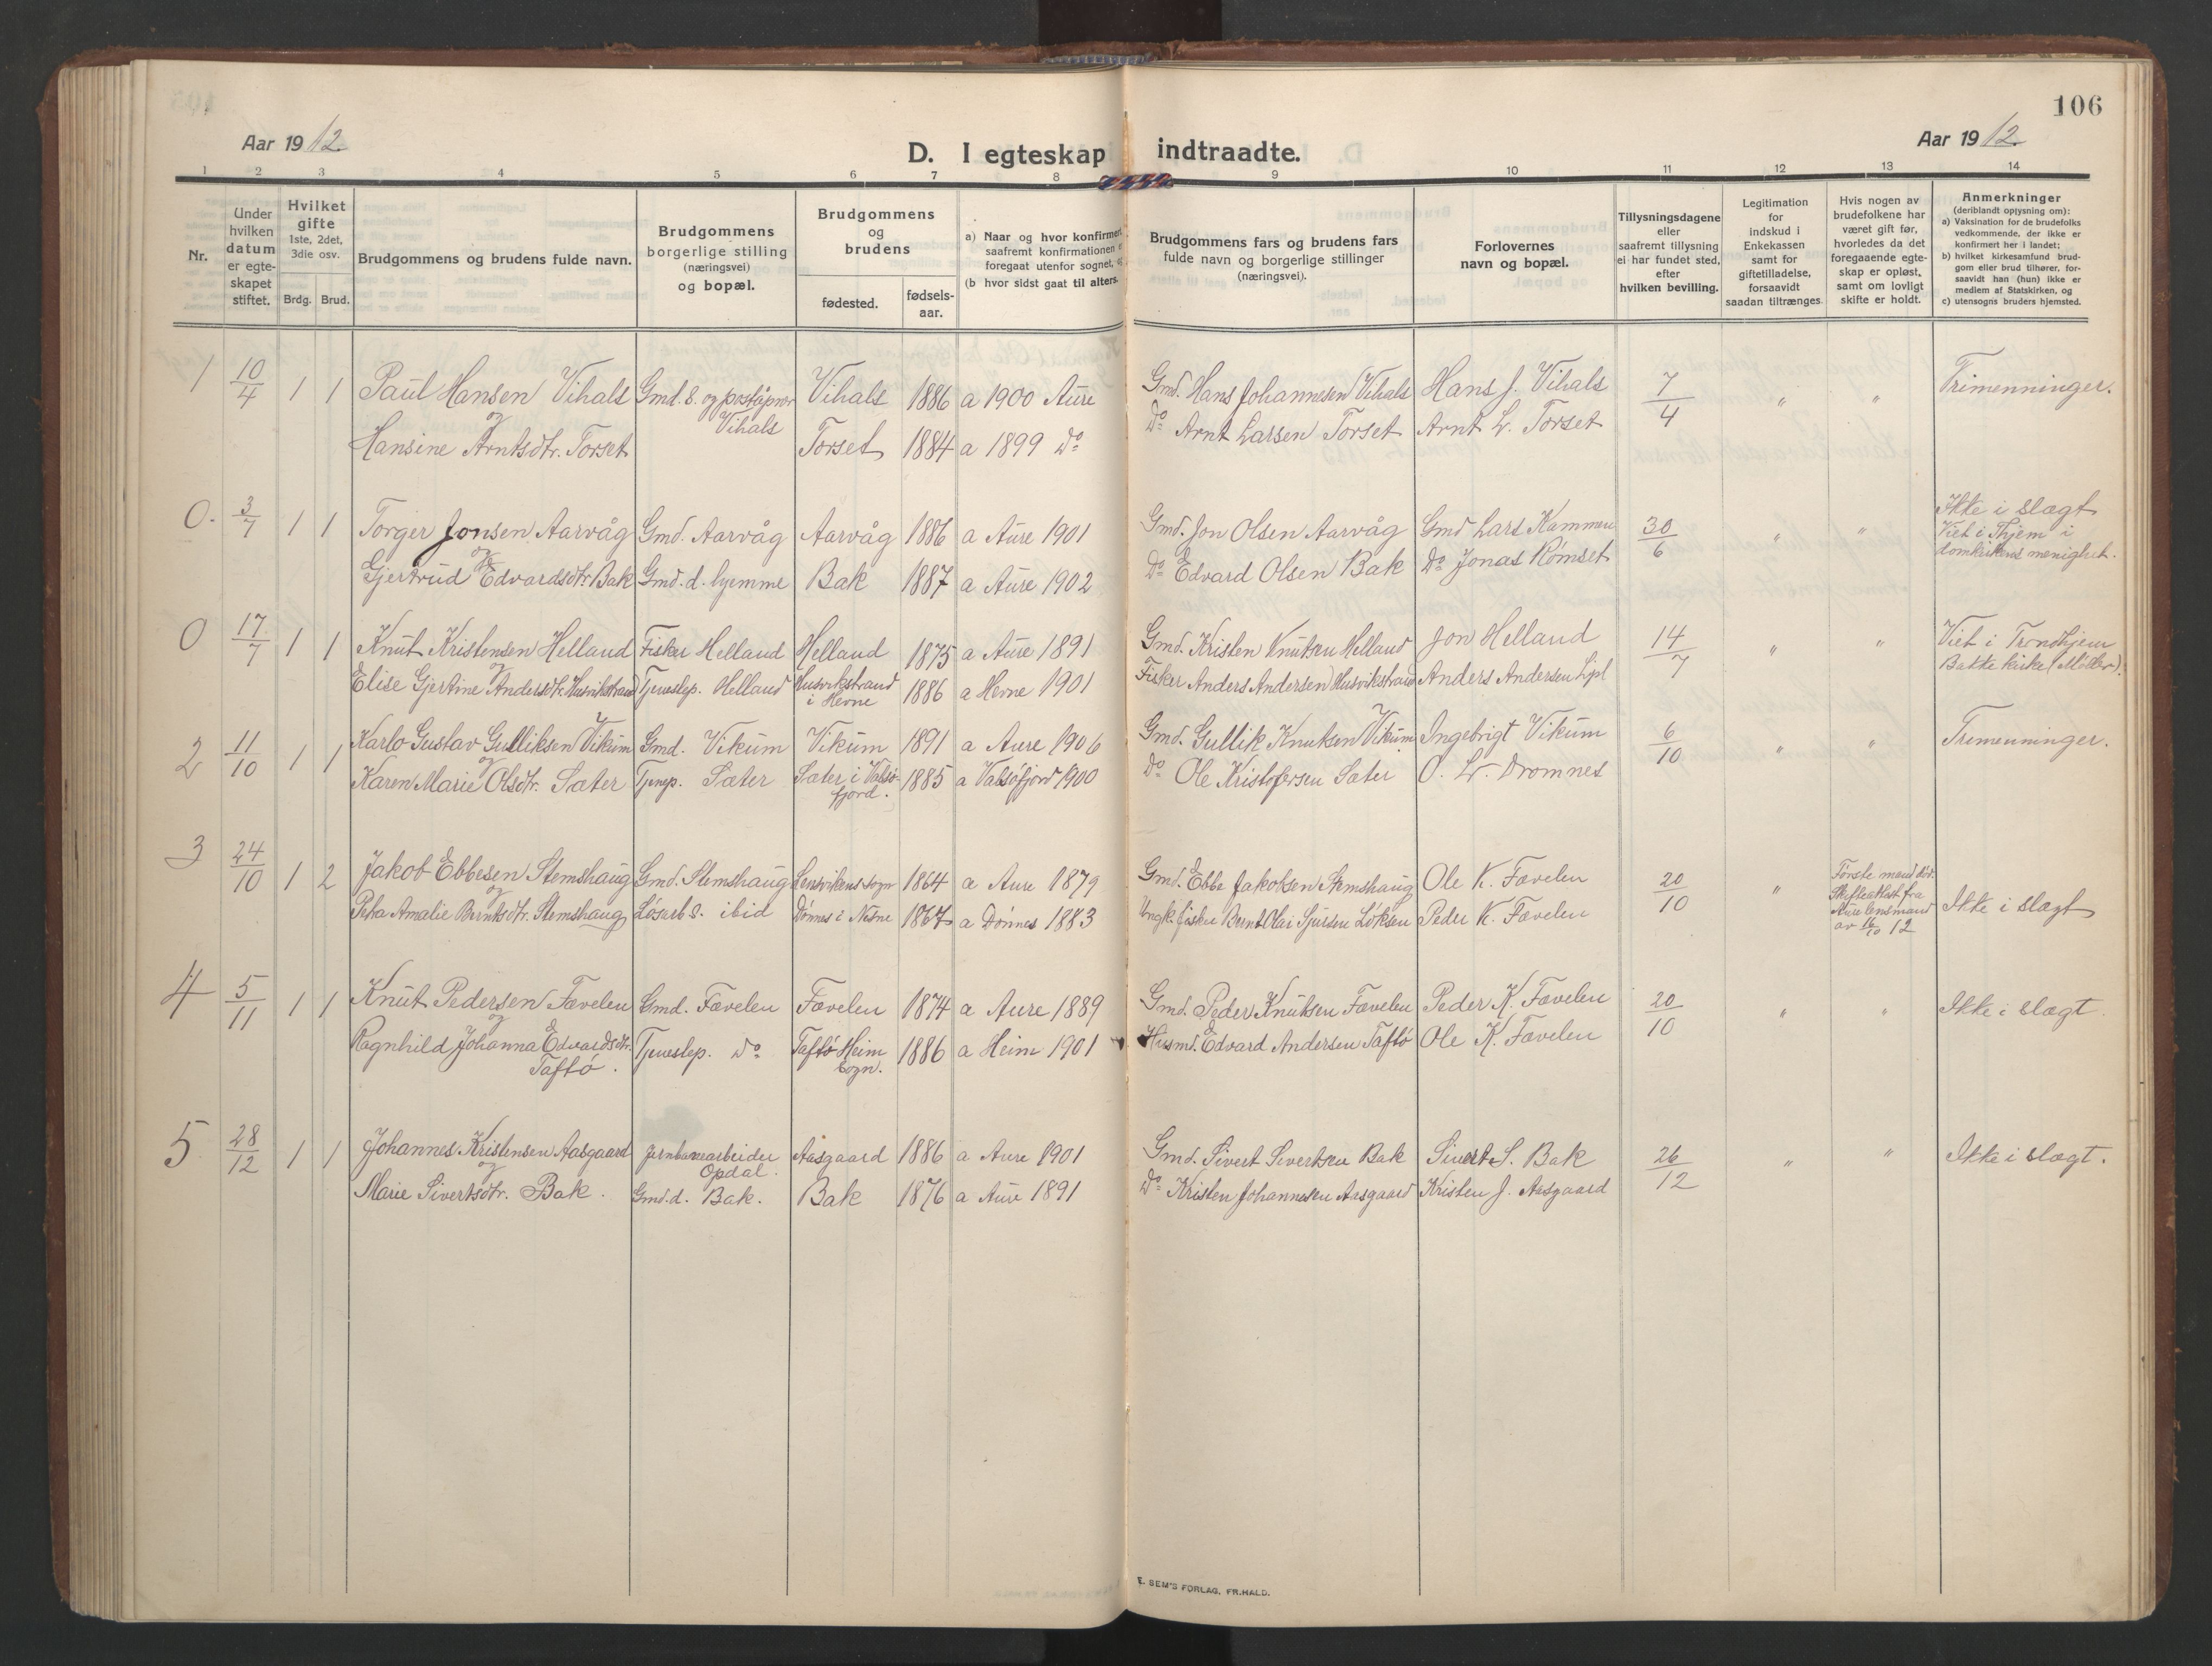 106
Aar 1912.
D. I egteskap indtraadte.
Aar 1912.
1 2 3 4 5 6 7 8 9 10 11 12 13 14
Nr.
Under hvilken datum er egteskapet stiftet.
Hvilket gifte 1ste, 2det, 3die osv.
Brdg. Brud.
Brudgommens og brudens fulde navn.
Brudgommens borgerlige stilling (næringsvei) og bopæl.
Brudgommens og brudens
fødested.
fødselsaar.
a) Naar og hvor konfirmert
saafremt konfirmationen
foregaat utenfor sognet,
(b hvor sidst gaat til alters.
Brudgommens fars og brudens fars
fulde navn og borgerlige stillinger
(næringsvei).
Forlovernes
navn og bopæl.
Tillysningsdagene
eller
saafremt tillysning
ei har fundet sted,
efter
hvilken bevilling.
Legitimation
for
indskud i
Enkekassen
samt for
giftetilladelse,
forsaavidt
saadan tiltrænges.
Hvis nogen av
brudefolkene har
været gift før,
hvorledes da det
foregaaende egte-
skap er opløst,
samt om lovligt
skifte er holdt.
Anmerkninger
(deriblandt opjysning om):
a) Vaksination for de brudefolks
vedkommende, der ikke er
konfirmert her i landet;
b) hvilket kirkesamfund brud-
gom eller brud tilhører, for-
saavidt han (hun) ikke er
medlem af Statskirken, og
c) utensogns bruders hjemsted.
1 10/4 1 1 Paul Hansen Vihals Gmd. s. og poståpner Vihals Vihals 1886 a 1900 Aure Gmd. Hans Johannesen Vihals Hans J. Vihals 7/4 " " Trimenninger.
og
Hansine Arntsdtr. Torset Torset 1884 a 1899 do Do Arnt Larsen Torset Arnt L. Torset
0. 3/7 1 1 Torger Jonsen Aarvåg Gmd. Aarvåg Aarvåg 1886 a Aure 1901 Gmd. Jon Olsen Aarvåg Gmd Lars Kammen 30/6 " " Ikke i slægt
Viet i Thjem i
domkirkens menighet.
og
Gjertrud Edvardsdtr. Bak Gmd. d. hjemme Bak 1887 a Aure 1902 Do Edvard Olsen Bak Do Jonas Rømset
0 17/7 1 1 Knut Kristensen Helland Fisker Helland Helland 1875 a Aure 1891 Gmd. Kristen Knutsen Helland Jon Helland 14/7 " " Viet i Trondhjem
Bakke kirke (Møller).
og
Elise Gjertine Andersdtr. Husvikstrand Tjeneslep. Helland Husvikstrand i Hevne 1886 a Hevne 1901 Fisker Anders Andersen Husvikstrand Anders Andersen
2 11/10 1 1 Karlo Gustav Gulliksen Vikum Gmd. Vikum Vikum 1891 a Aure 1906 Gmd. Gullik Knutsen Vikum Ingebrigt Vikum 6/10 " " Tremenninger.
og
Karen Marie Olsdtr. Sæter Tjenp. Sæter Sæter i Valsøfjord. 1885 a Valsøfjord 1900 Do Ole Kristofersen Sæter O. L. Dromnes
3 24/10 1 2 Jakob Ebbesen Stemshaug Gmd. Stemshaug Lensvikens sogn 1864 a Aure 1879 Gmd. Ebbe Jakobsen Stemshaug Ole K. Fævelen 20/10 " Første mand død.
Skifteattest fra
Aure lensmand
av 16/10 12
og
Petra Amalie Berntsdtr. Stemshaug Løsarb s. ibid Dønnes i Nesne 1867 a Dønnes 1883 Ungk. fisker Bernt Olai Sjursen Løksen Peder K. Fævelen Ikke i slægt
4 5/11 1 1 Knut Pedersen Fævelen Gmd. Fævelen Fævelen 1874 a Aure 1889 Gmd. Peder Knutsen Fævelen Peder K. Fævelen 20/10 " " Ikke i slægt.
og
Ragnhild Johanna Edvardsdtr. Taftø. Tjeneslep. do Taftø Heim sogn. 1886 a Heim 1901 Husmd. Edvard Andersen Taftø Ole K. Fævelen
5 28/12 1 1 Johannes Kristensen Aasgaard Jernbanearbeider Opdal. Aasgaard 1886 a Aure 1901 Gmd. Sivert Sivertsen Bak Sivert S. Bak 26/12 " " Ikke i slægt.
og
Marie Sivertsdtr. Bak. Gmd. d. Bak. Bak 1876 a Aure 1891 Do Kristen Johannesen Aasgaard Kristen J. Aasgaard
E. SEM'S FORLAG, FR.HALD.